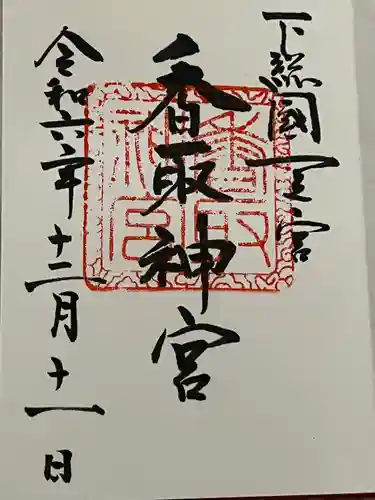 下総國一宮
香取神宮
令和六年十二月十一日
香取神宮